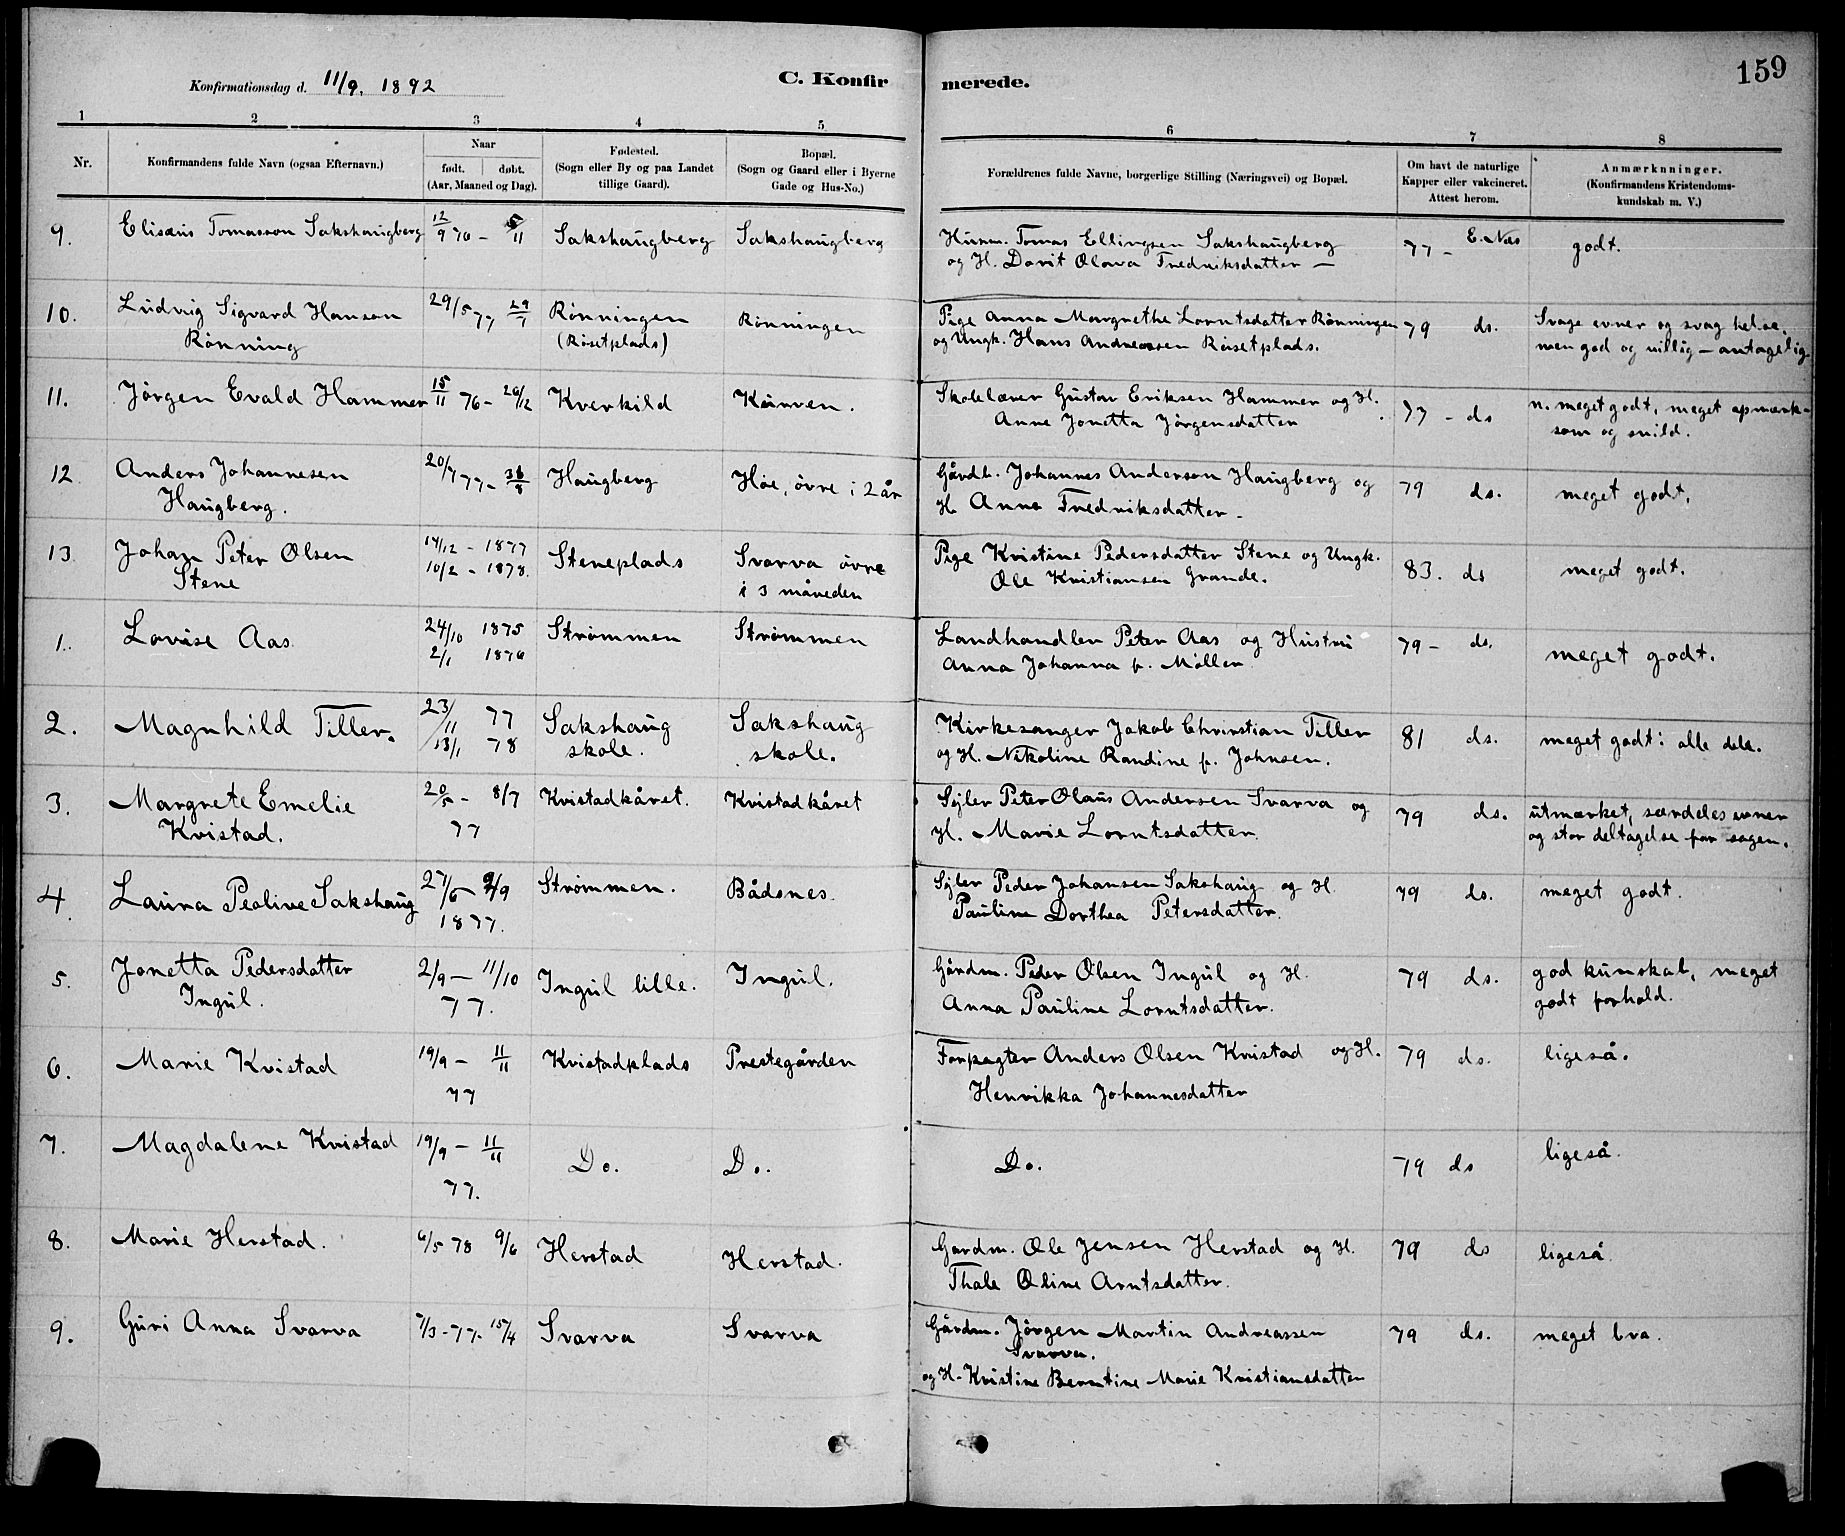 159
Konfirmationsdag d. 11/9. 1892
C. Konfirmerede.
1 2 3 4 5 6 7 8
Nr.
Konfirmandens fulde Navn (ogsaa Efternavn.)
Naar
født. døbt.
(Aar, Maaned og Dag).
Fødested.
(Sogn eller By og paa Landet
tillige Gaard).
Bopæl.
(Sogn og Gaard eller i Byerne
Gade og Hus-No.)
Forældrenes fulde Navne, borgerlige Stilling (Næringsvei) og Bopæl.
Om havt de naturlige
Kapper eller vakcineret.
Attest herom.
Anmærknninger.
(Konfirmandens Kristendoms-
kundskab m. V.)
9. Elisæus Tomasson Sakshaugberg 12/9 76 - 5/11 Sakshaugberg Sakshaugberg Husm. Tomas Ellingsen Sakshaugberg 77 - E. Næs godt.
og H. Dorit Olava Fredriksdatter —
10. Ludvig Sigvard Hanson 29/5 77 29/7 Rønningen Rønningen Pige Anna Margrethe Lorntsdatter Rønningen 79 ds. Svage evner og svag helse,
Rønning (Røsetplads) og Ungk. Hans Andreassen Røisetplads. men god og villig — antagelig
11. Jørgen Evald Hammer 15/11 76 - 26/12 Kverkild Kurven. Skolelærer Gustav Eriksen Hammer og H. 77 - ds n. meget godt, meget opmærk-
Anne Jonetta Jørgensdatter som og snild.
12. Anders Johannesen 20/7 77 - Haugberg Høe, øvre i 2 år Gårdb. Johannes Anderson Haugberg og 79 ds. meget godt.
Haugberg. H. Anna Fredriksdatter -
13. Johan Peter Olsen 14/12 - 1877 Steneplads Svarva øvre Pige Kristine Pedersdatter Stene og Ungk. 83. ds meget godt.
Stene 10/2 - 1878. i 3 måneden Ole Kristiansen Grande.
1. Lovise Aas 24/10 1875 Strømmen Strømmen Landhandler Peter Aas og Hustru 79 - ds. meget godt.
2/1 1876 Anna Johanna f. Møller
2. Magnhild Tiller. 23/11 77 Sakshaug Sakshaug Kirkesanger Jakob Christian Tiller 81 ds. meget godt i alle dele.
13/1 78 skole. skole. og H. Nikoline Randine f. Johnsen.
3. Margrete Emelie 20/5 - 8/7 Kvistadkåret. Kvistadkåret Sejler Peter Olaus Andersen Svarva og 79 ds. utmærket, særdeles evner
Kvistad. 77 H. Marie Lorntsdatter. og stor deltagelse for sagen.
4. Laura Peolive Sakshaug 27/6 - 2/9 Strømmen. Bådsnes. Sejler Peder Johansen Sakshaug og H. 79 ds. meget godt.
1877. Pauline Dorthea Petersdatter.
5. Jonetta Pedersdatter 2/9 - 11/10 Ingul lille. Ingul. Gårdm. Peder Olsen Ingul og H. 79 ds. god kunskab, meget
Ingul. 77. Anna Pauline Lorntsdatter. godt forhold.
6. Marie Kvistad 19/9 - 11/11 Kvistadplads Prestegården Forpagter Anders Olsen Kvistad og H. 79 ds. ligeså.
77 Henrikka Johannesdatter
7. Magdalene Kvistad 19/9 - 11/11 Do. Do. Do. 79 ds ligeså.
77.
8. Marie Herstad. 6/5 78 9/6 Herstad Herstad. Gardm. Ole Jensen Herstad og H. 79 ds ligeså.
Thale Oline Arntsdatter.
9. Guri Anna Svarva 7/3 - 77. 15/4 Svarva Svarva Gårdm. Jørgen Martin Andreassen 79 ds. meget bra.
Svarva.
og H. Kristine Berntine Marie Kristiansdatter